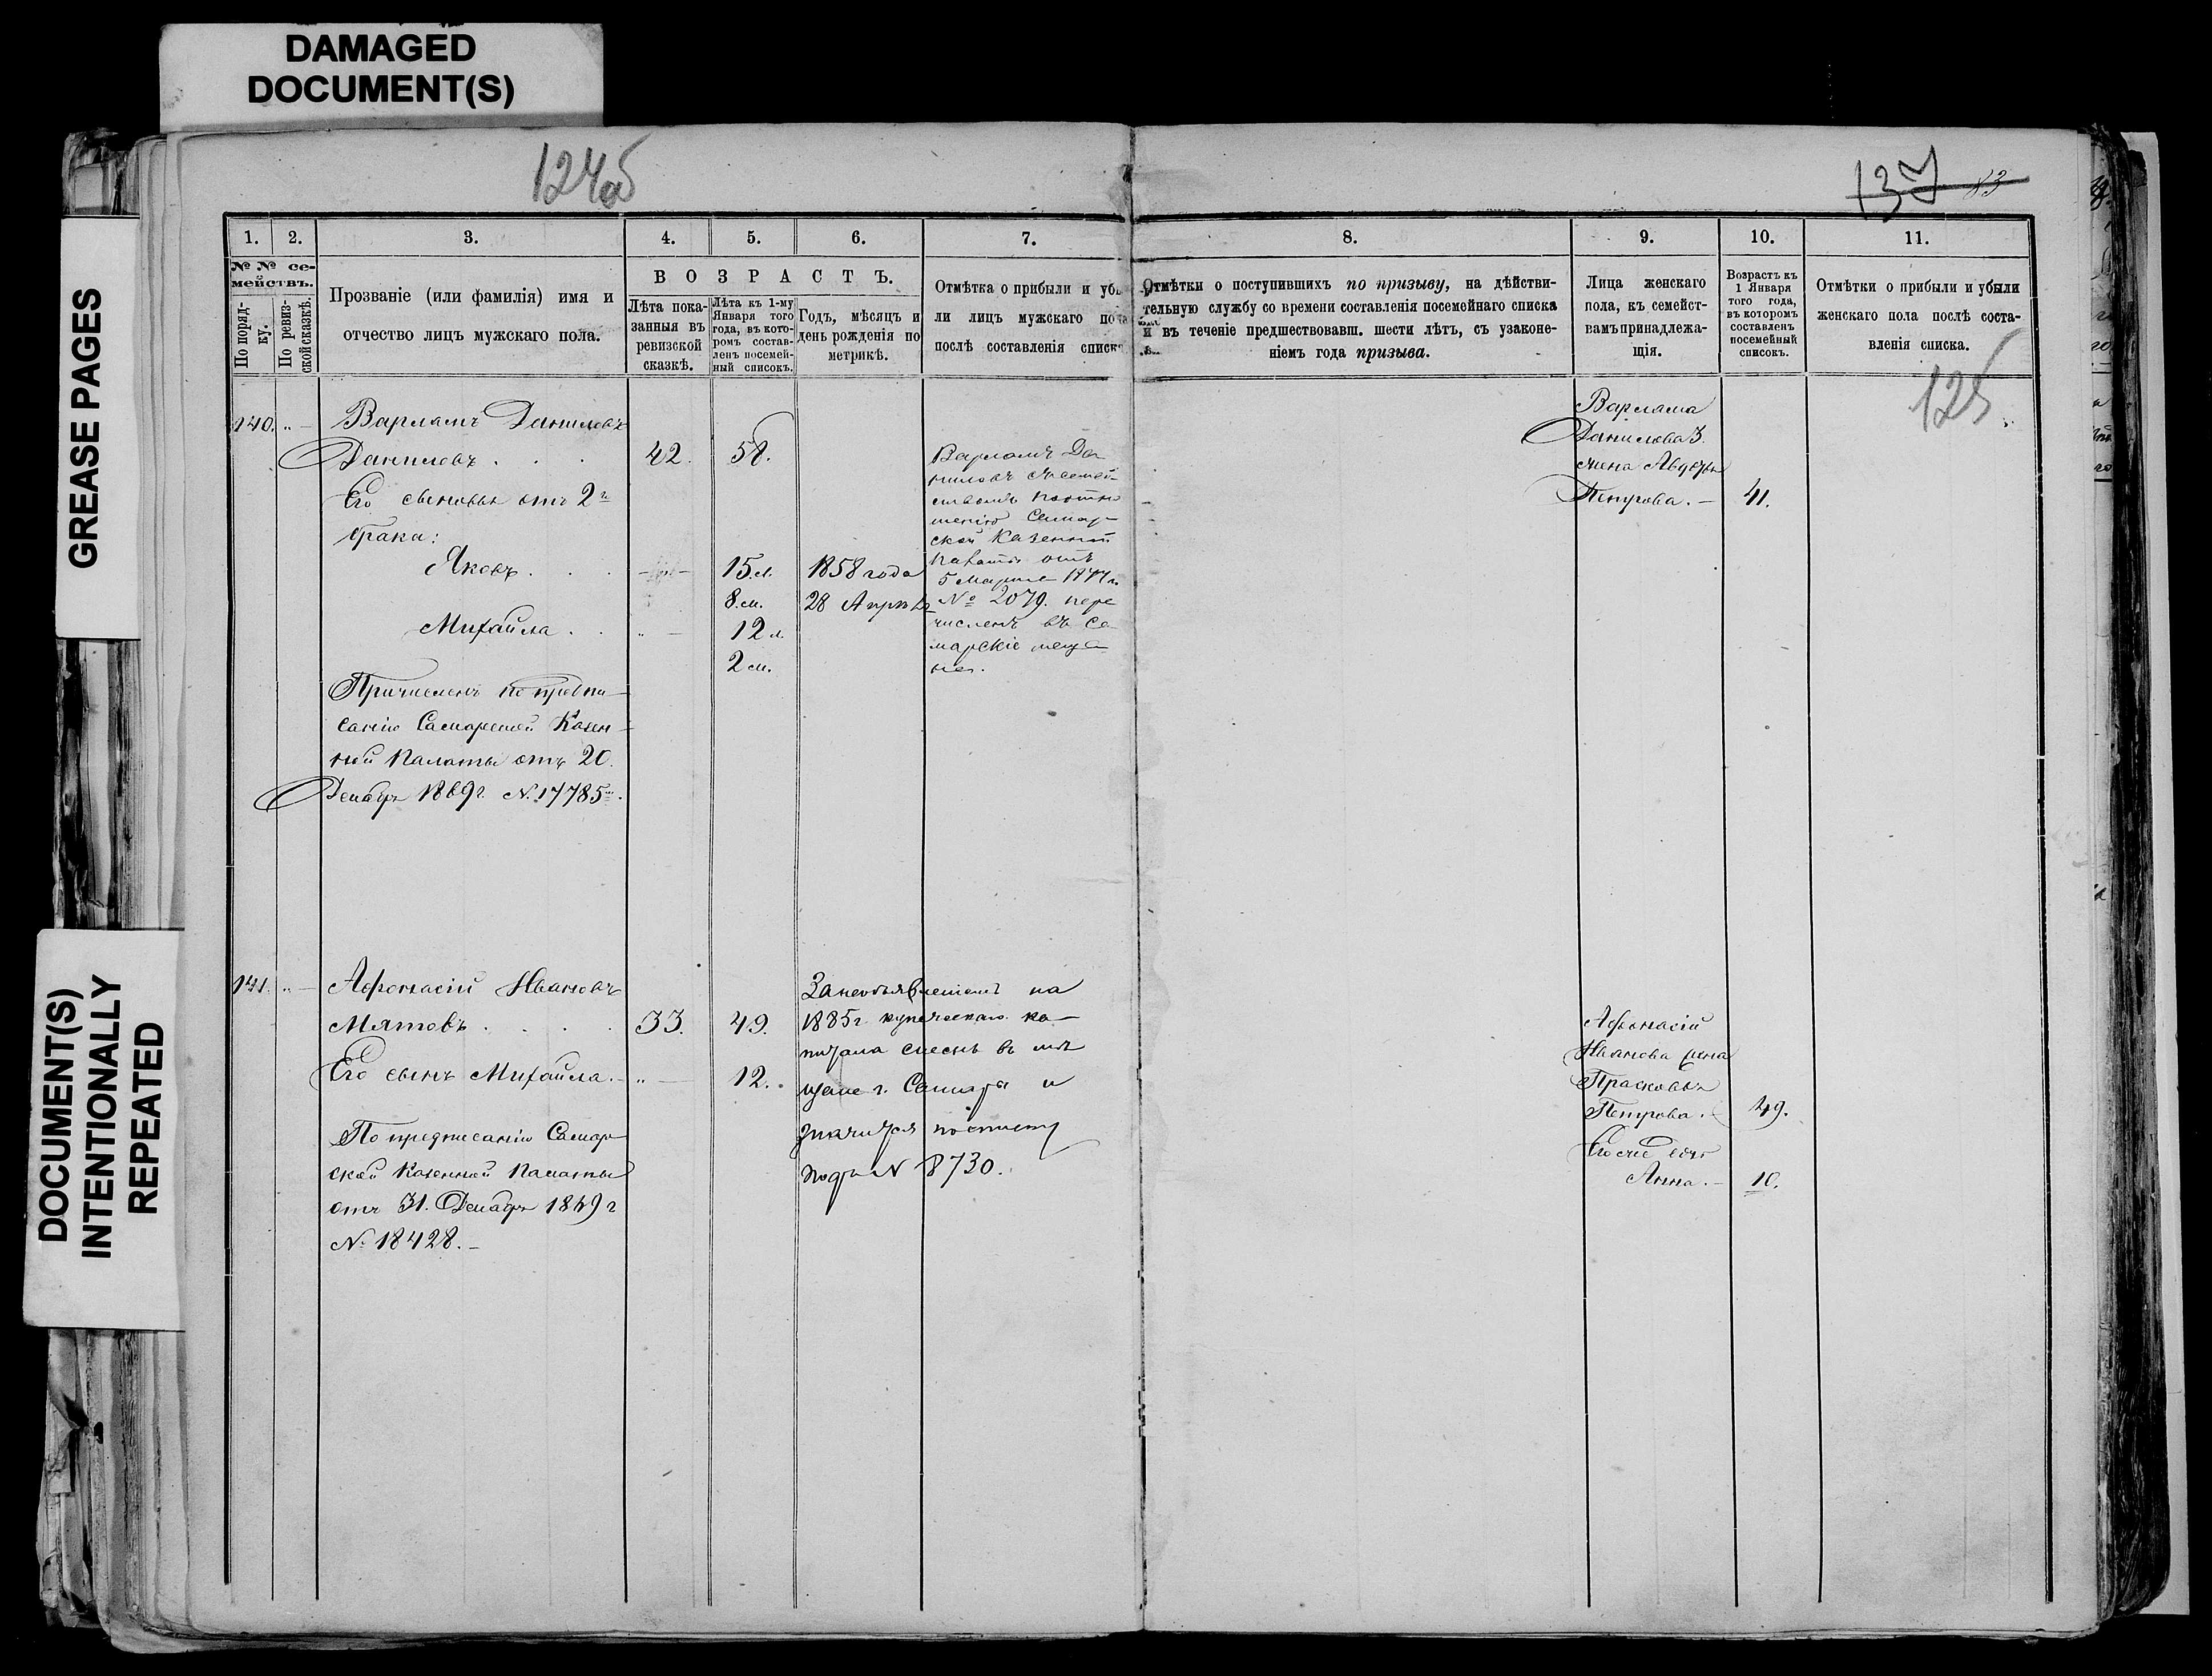 DAMAGED
DOCUMENT(S)
GREASE PAGES
DOCUMENT(S)
INTENTIONALLY
REPEATED
124об
137
83
125
1. 2. 3. 4. 5. 6. 7. 8. 9. 10. 11.
№ № се-
мействъ.
По поряд-
ку.
По ревиз-
ской сказкѣ.
Прозваніе (или фамилія) имя и
отчество лицъ мужскаго пола.
ВОЗРАСТЪ.
Лѣта пока-
занныя въ
ревизской
сказкѣ.
Лѣта къ 1-му
Января того
года, въ кото-
ромъ состав-
ленъ посемей-
ный списокъ.
Годъ, мѣсяцъ и
день рожденія по
метрикѣ.
Отмѣтка о прибыли и убы-
ли лицъ мужскаго пола
послѣ составленія списка
Отмѣтки о поступившихъ по призыву, на дѣйстви-
тельную службу со времени составленія посемейнаго списка
и въ теченіе предшествовавш. шести лѣтъ, съ узаконе-
ніемъ года призыва.
Лица женскаго
пола, къ семейст-
вамъ принадлежа-
щія.
Возрастъ къ
1 Января
того года,
въ которомъ
составленъ
посемейный
списокъ.
Отмѣтки о прибыли и убыли
женскаго пола послѣ соста-
вленія списка.
140. „ — Варламъ Даниловъ
Даниловъ . . . 42. 58.
Его сыновья отъ 2го
брака:
Яковъ . . . 15.л. 1858 года
8.м. 28 Апрѣля
Михайла . . „ — 12 л.
2 м.
Причисленъ по предпи-
санію Самарской Казен-
ной Палаты отъ 20.
Декабря 1869 г. №. 17785.
Варламъ Да-
ниловъ съ семей-
ствомъ по отно-
шенію Самар-
ской Казенной
Палаты отъ
5 Марта 1877 г.
№ 2079. пере
численъ въ Са-
марскіе меща-
не.
Варлама
Данилова
жена Авдотья
Петрова. — 41.
141. „ — Афонасій Ивановъ
Мятовъ . . . . 33. 49.
Его сынъ Михайла. — „ — 12.
По предписанію Самар-
ской Казенной Палаты
отъ 31. Декабря 1869 г
№ 18428. —
За необъявленіемъ на
1885 г. купеческаго ка-
питала въ мѣ
щане г. Самары и
значится по списку
подъ № 8730.
Афонасій
Иванова жена
Прасковья
Петрова. — 49.
Анна. — 10.